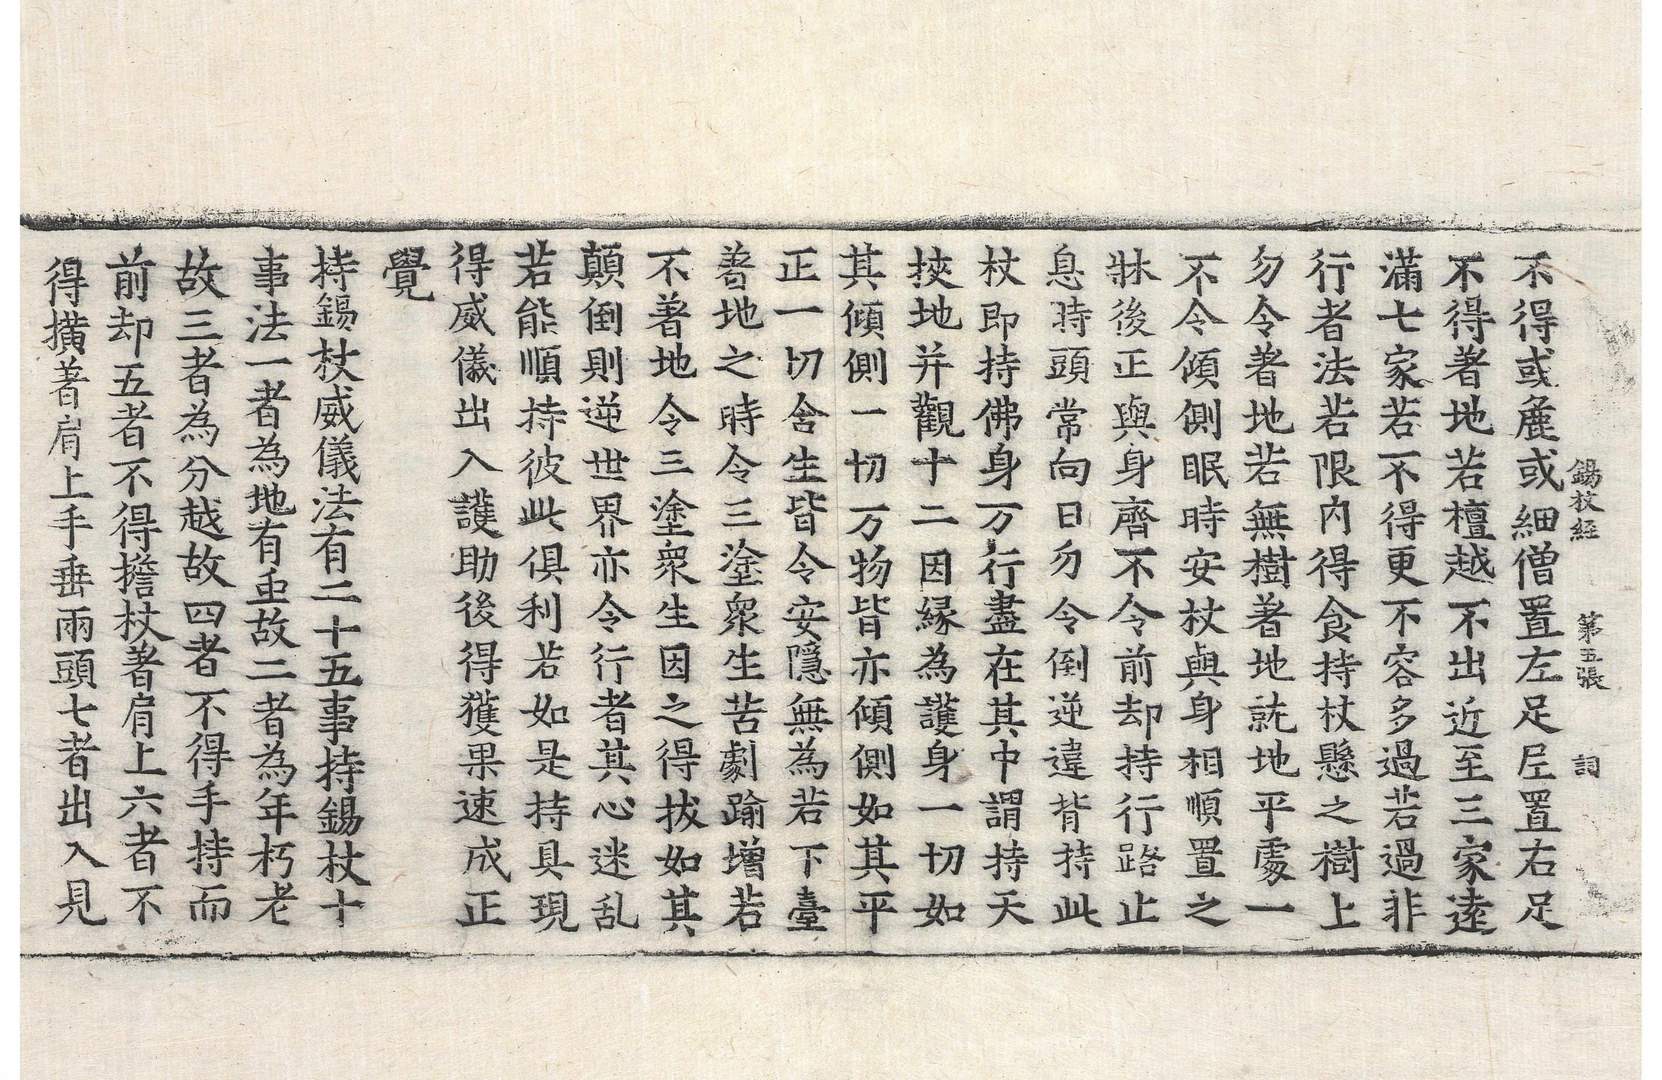 錫杖経　第五張　詞
不得或麁或細僧置左足尼置右足
不得著地若檀越不出近至三家遠
滿七家若不得更不容多過若過非
行者法若限内得食持杖懸之樹上
勿令著地若無樹著地就地平處一
不令傾側眠時安杖與身相順置之
牀後正與身齊不令前却持行路止
息時頭常向日勿令倒逆違背持此
杖即持佛身万行盡在其中謂持天
挾地并觀十二因縁為護身一切如
其傾側一切万物皆亦傾側如其平
正一切舍生皆令安隱無為若下臺
著地之時令三塗衆生苦劇踰增若
不著地令三塗衆生因之得拔如其
顛倒則逆世界亦令行者其心迷乱
若能順持彼此俱利若如是持具現
得威儀出入護助後得獲果速成正
覺
持錫杖威儀法有二十五事持錫杖十
事法一者為地有重故二者為年朽老
故三者為分越故四者不得手持而
前却五者不得擔杖著肩上六者不
得撗著肩上手垂兩頭七者出入見